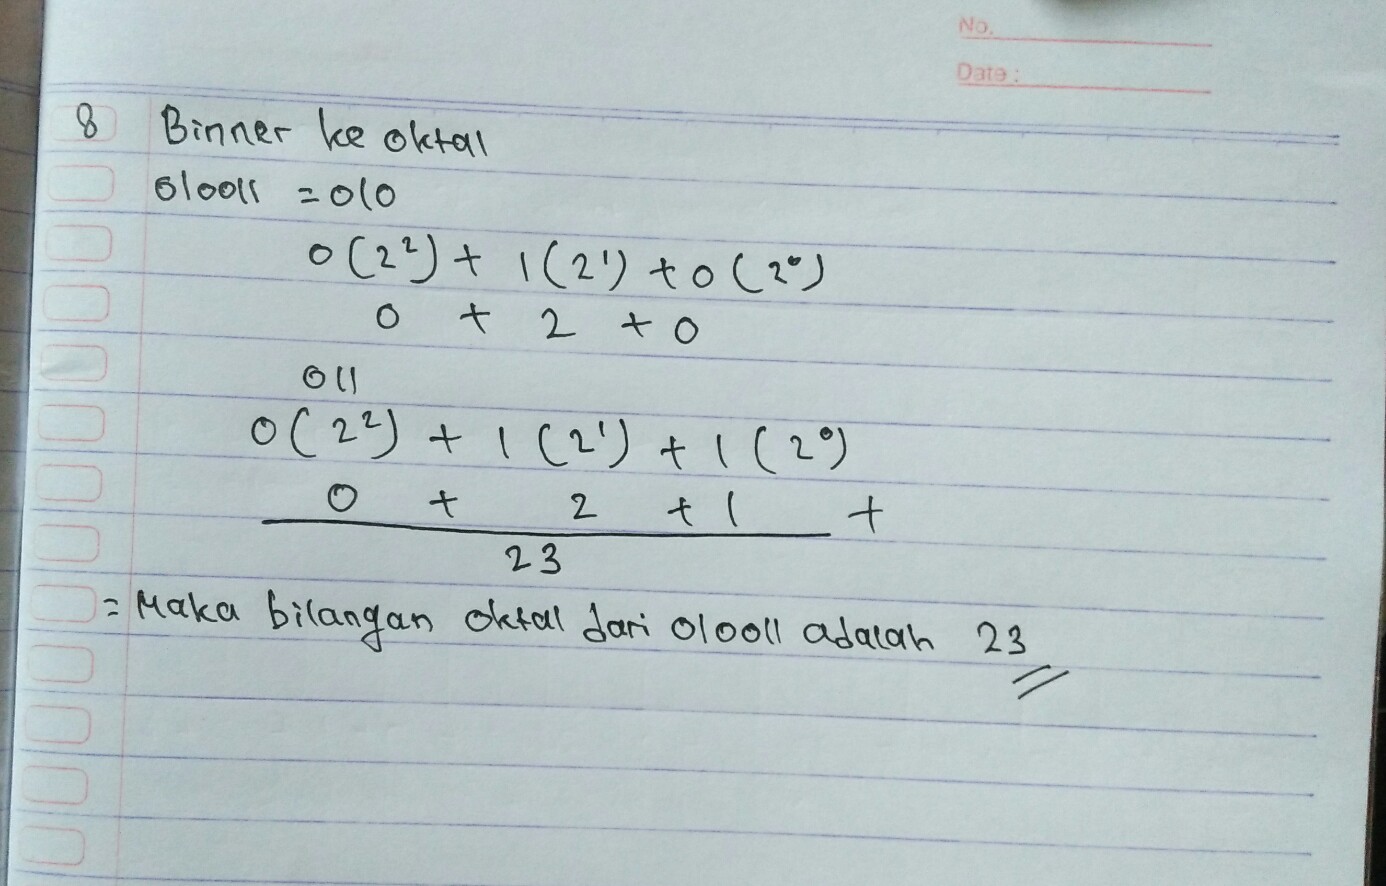 No.
Date :
8 Binner ke oktal
010011 = 010
0 (2²) + 1 (2¹) + 0 (2⁰)
0 + 2 + 0
011
0 (2²) + 1 (2¹) + 1 (2⁰)
0 + 2 + 1 +
23
= Maka bilangan oktal dari 010011 adalah 23